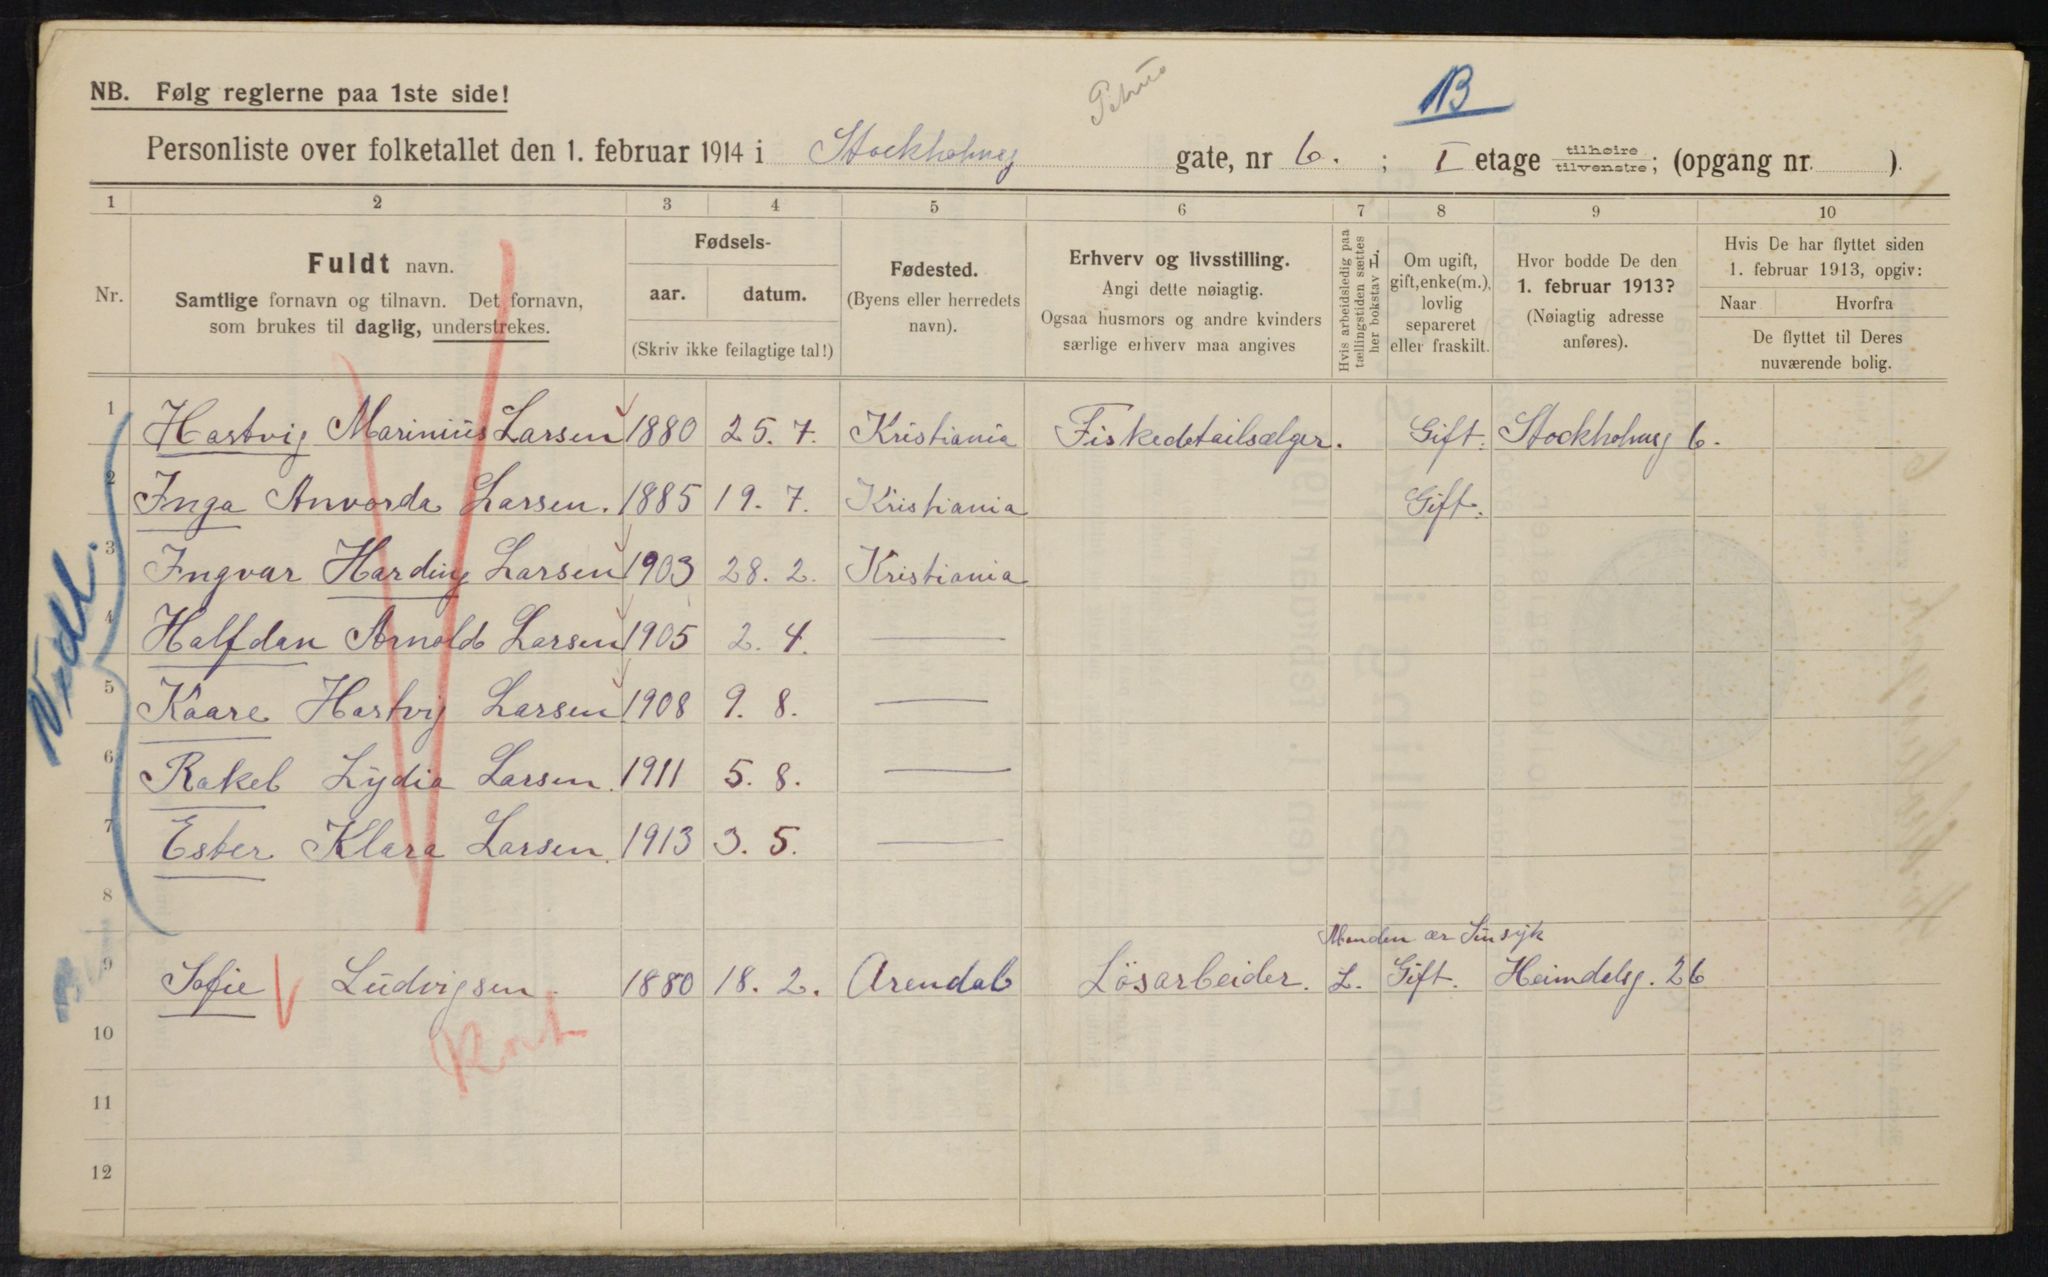 NB. Følg reglerne paa 1ste side!
B
Personliste over folketallet den 1. februar 1914 i Stockholmsg gate, nr 6. ; I etage tilhøire tilvenstre; (opgang nr. ).
1 2 3 4 5 6 7 8 9 10
Nr.
Fuldt navn.
Samtlige fornavn og tilnavn. Det fornavn,
som brukes til daglig, understrekes.
Fødsels-
aar. datum.
(Skriv ikke feilagtige tal!)
Fødested.
(Byens eller herredets
navn).
Erhverv og livsstilling.
Angi dette nøiagtig.
Ogsaa husmors og andre kvinders
særlige erhverv maa angives
Hvis arbeidsledig paa
tællingstiden sættes
her bokstav L.
Om ugift,
gift, enke(m.),
lovlig
separeret
eller fraskilt.
Hvor bodde De den
1. februar 1913?
(Nøiagtig adresse
anføres).
Hvis De har flyttet siden
1. februar 1913, opgiv:
Naar Hvorfra
De flyttet til Deres
nuværende bolig.
Vedl.
1 Hartvig Marinius Larsen 1880 25. 7. Kristiania Fiskedetailsælger. Gift. Stockholmsg 6.
2 Inga Anvorda Larsen. 1885 19. 7. Kristiania Gift.
3 Ingvar Harding Larsen 1903 28. 2. Kristiania
4 Halfdan Arnold Larsen 1905 2. 4. —
5 Kaare Hartvig Larsen 1908 9. 8. —
6 Rakel Lydia Larsen. 1911 5. 8. —
7 Ester Klara Larsen. 1913 3. 5. —
8
Manden ær Sinsyk
9 Sofie Ludvigsen. 1880 18. 2. Arendal Lösarbeider. L. Gift. Heimdalsg. 26
Kort
10
11
12